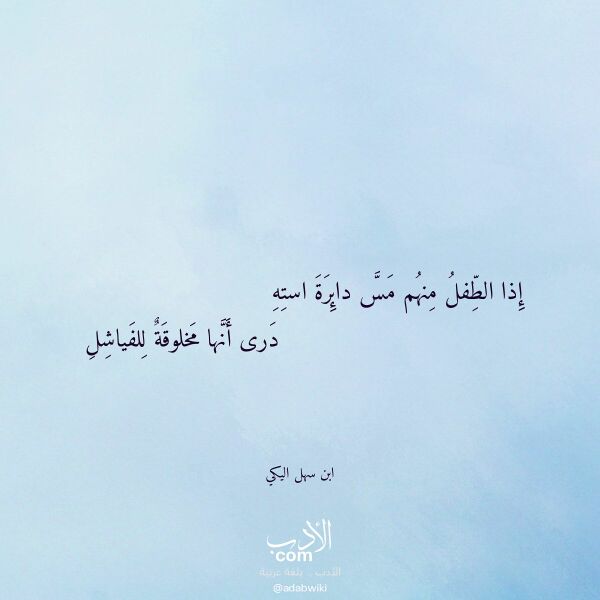 إِذا الطِّفلُ مِنهُم مَسَّ دايِرَةَ استِهِ
دَرى أَنَّها مَخلوقَةٌ لِلفَياشِلِ
ابن سهل اليكي
الأدب
.com
الأدب .. بلغة عربية
@adabwiki